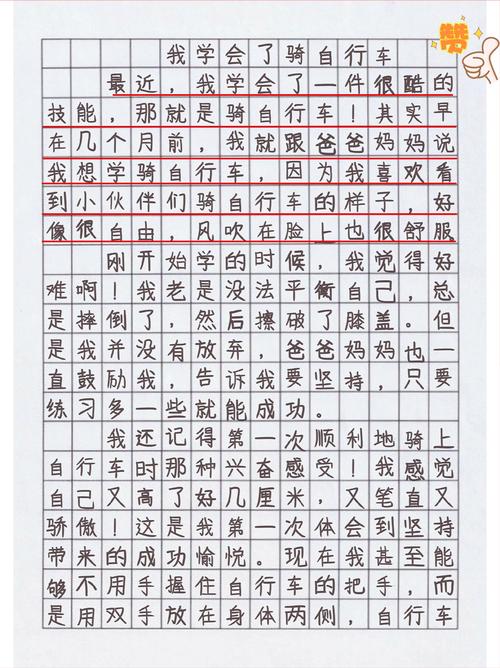 赞
我学会了骑自行车
最近，我学会了一件很酷的
技能，那就是骑自行车！其实早
在几个月前，我就跟爸爸妈妈说
我想学骑自行车，因为我喜欢看
到小伙伴们骑自行车的样子，好
像很自由，风吹在脸上也很舒服
刚开始学的时候，我觉得好
难啊！我老是没法平衡自己，总
是摔倒了，然后擦破了膝盖。但
是我并没有放弃，爸爸妈妈也一
直鼓励我，告诉我要坚持，只要
练习多一些就能成功。
我还记得第一次顺利地骑上
自行车时那种兴奋感受！我感觉
自己又高了好几厘米，又笔直又
骄傲！这是我第一次体会到坚持
带来的成功愉悦。现在我甚至能
够不用手握住自行车的把手，而
是用双手放在身体两侧，自行车